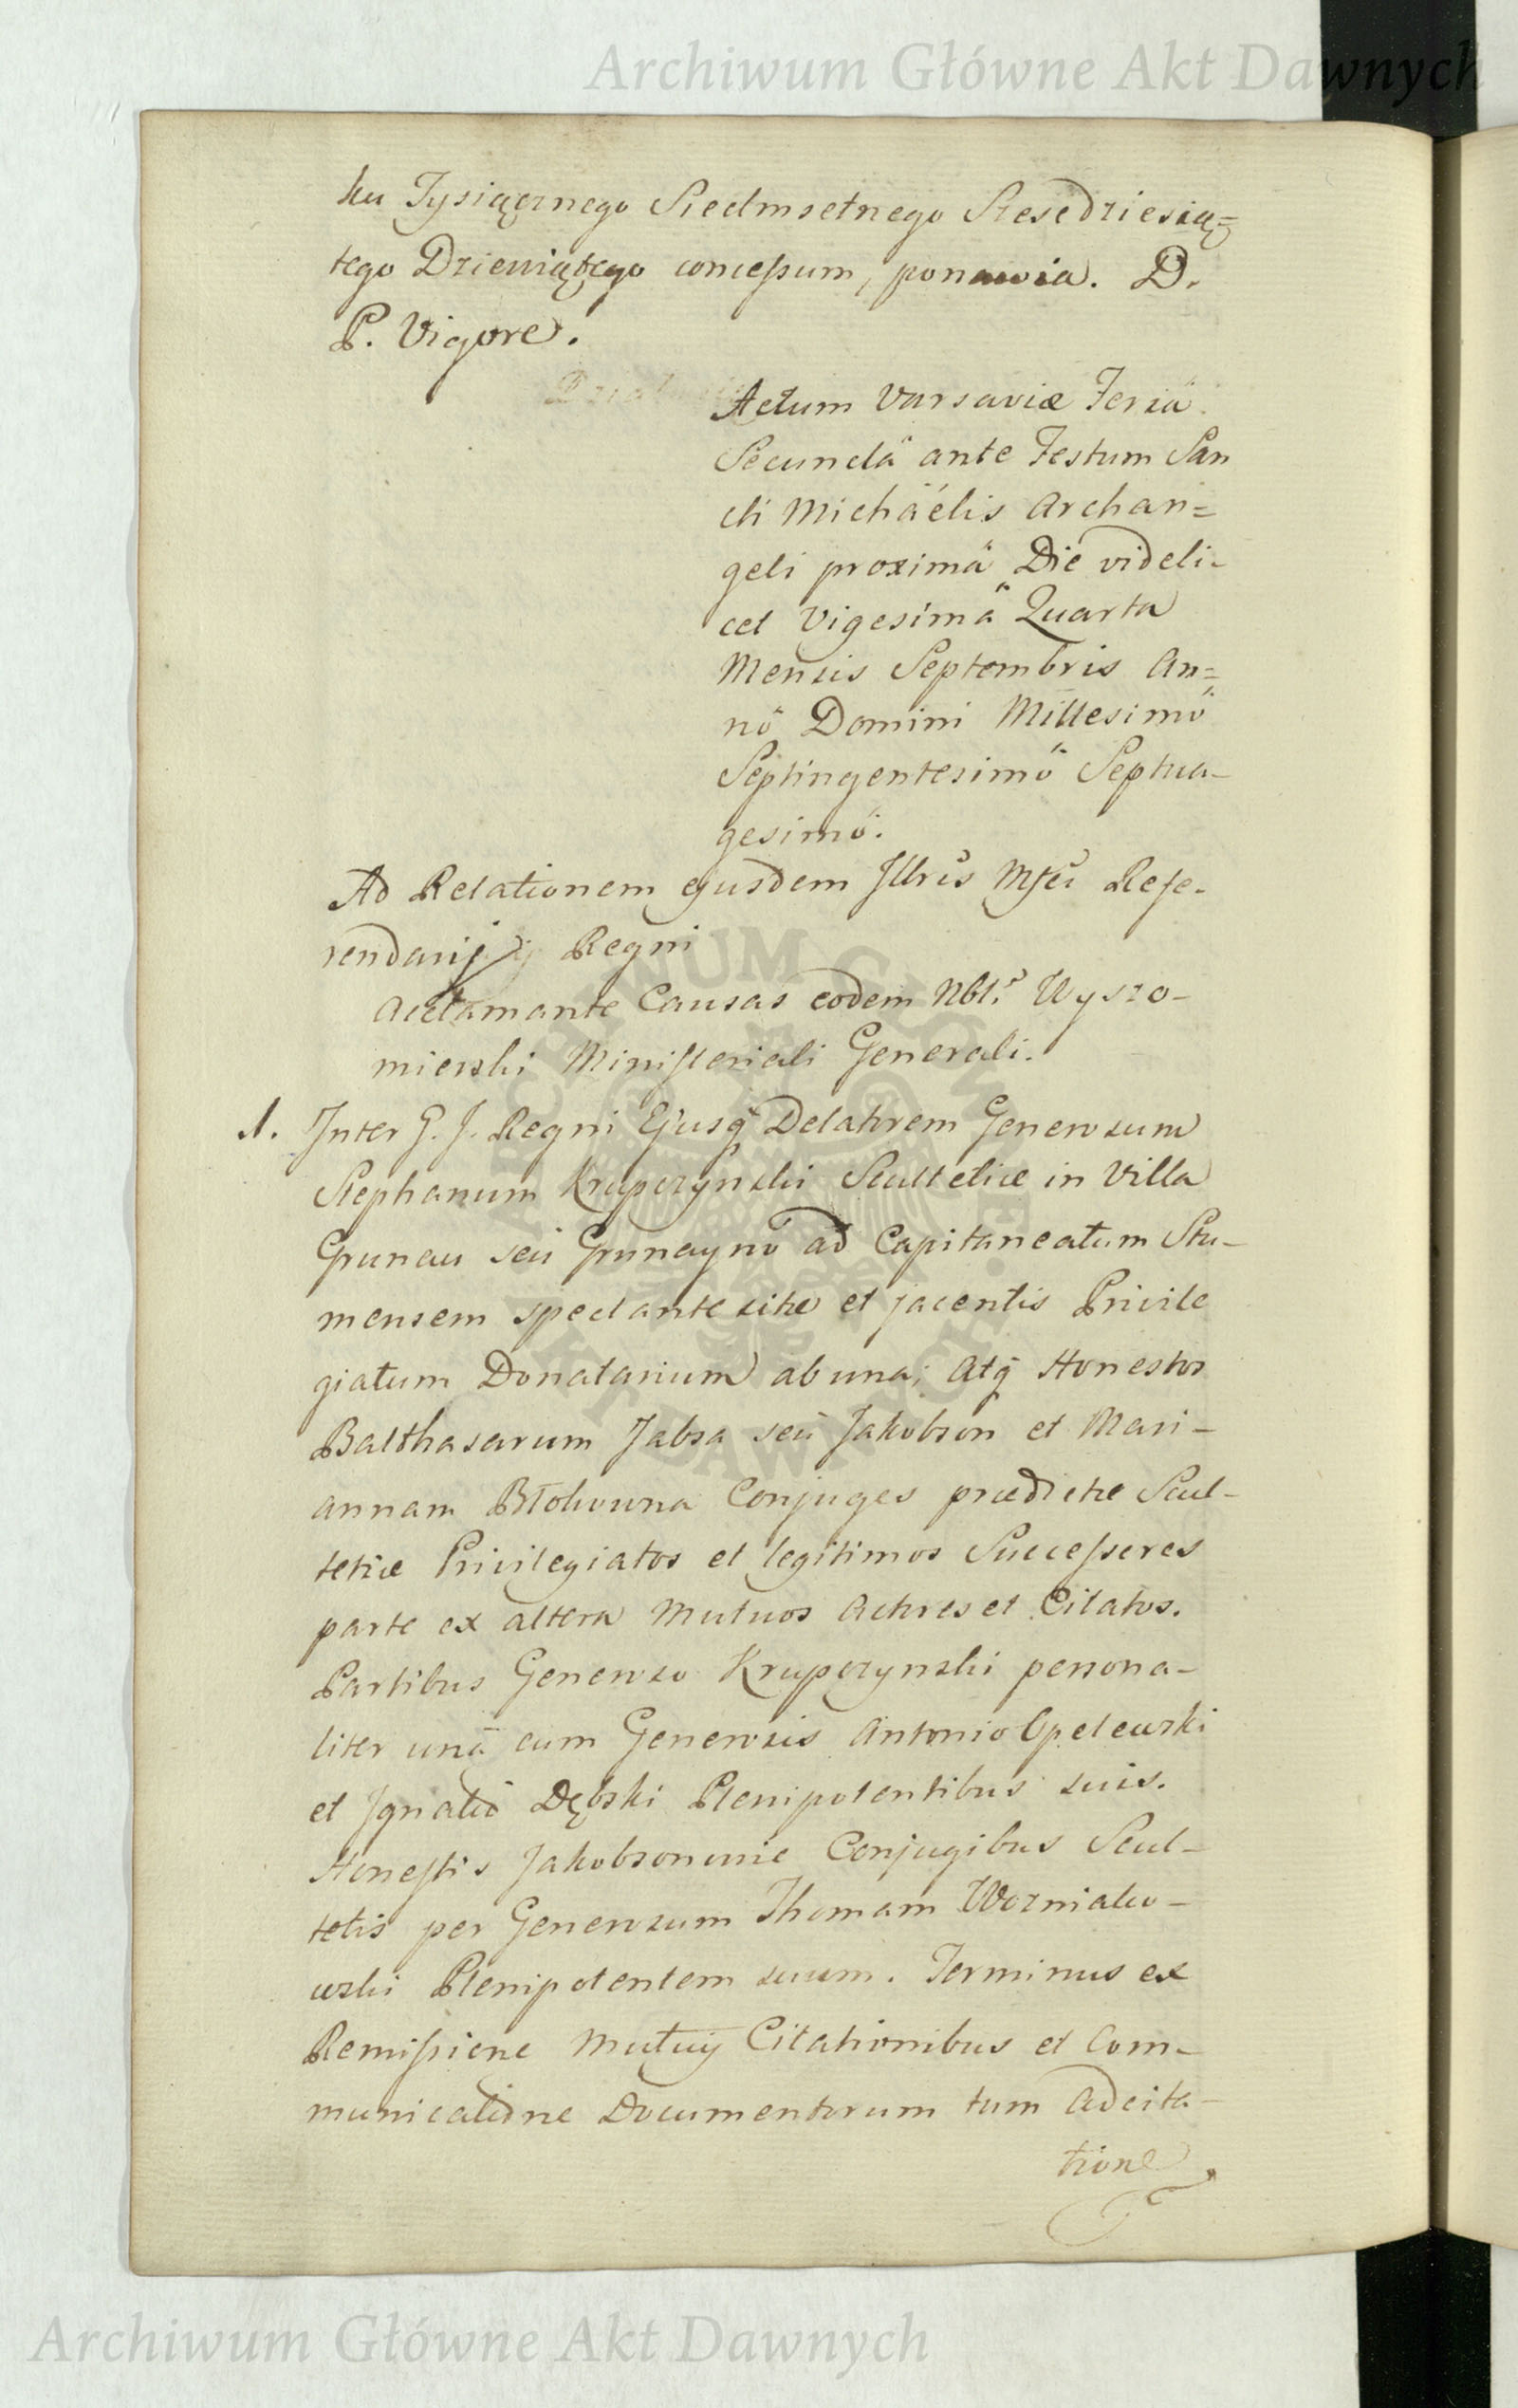 Archiwum Główne Akt Dawnych
ku Tysiącznego Siedmsetnego Szescdziesią=
tego Dziewiątego concessum, ponawia. D.
P. Vigore.
Actum Varsaviæ Feriä
Secundä ante Festum San
cti Michaëlis Archan=
geli proximä Die videli-
cet Vigesimä Quarta
Mensis Septembris An=
nö Domini Millesimö
Septingentesimö Septua-
gesimö.
Ad Relationem ejusdem Illris Mfci Refe-
rendarij Regni
Acclamante Causas eodem Nbli Wyszo-
mierski Ministeriali Generali.
1. Inter G. J. Regni Ejusq Delatorem Generosum
Stephanum Krupczynski Scultetiæ in Villa
Grunau seu Grunayno ad Capitaneatum Stu-
mensem spectante sitæ et jacentis Privile
giatum Donatarium ab una; Atq Honestos
Balthasarum Jabsa seu Jakobson et Mari-
annam Conjuges prædictæ Scul-
tetiæ Privilegiatos et legitimos Successores
parte ex altera Mutuos Actores et Citatos.
Partibus Generoso Krupczynski persona-
liter unä cum Generosis Antonio Opelewski
et Ignatio Dębski Plenipotentibus suis.
Honestis Jakobsonowie Conjugibus Scul-
tetis per Generosum Thomam Wozniako-
wski Plenipotentem suum. Terminus ex
Remissione Mutuis Citationibus et Com-
municatione Documentorum tum Adcita-
tione
Archiwum Główne Akt Dawnych